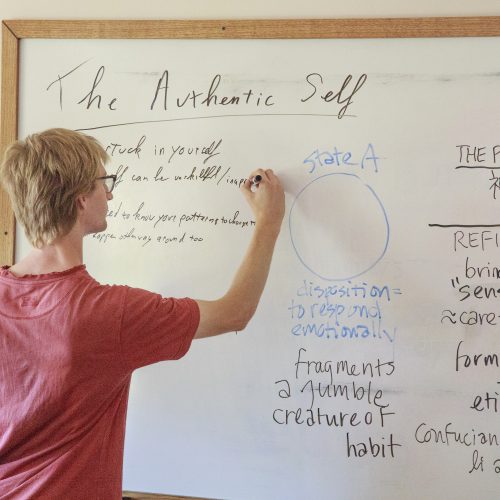 The Authentic Self
stuck in yourself
self can be
to know your patterns to change
other way around too
state A
disposition =
to respond
emotionally
fragments
a jumble
creature of
habit
THE P
REFI
brin
"sens
≈ care
form
eti
Confucian